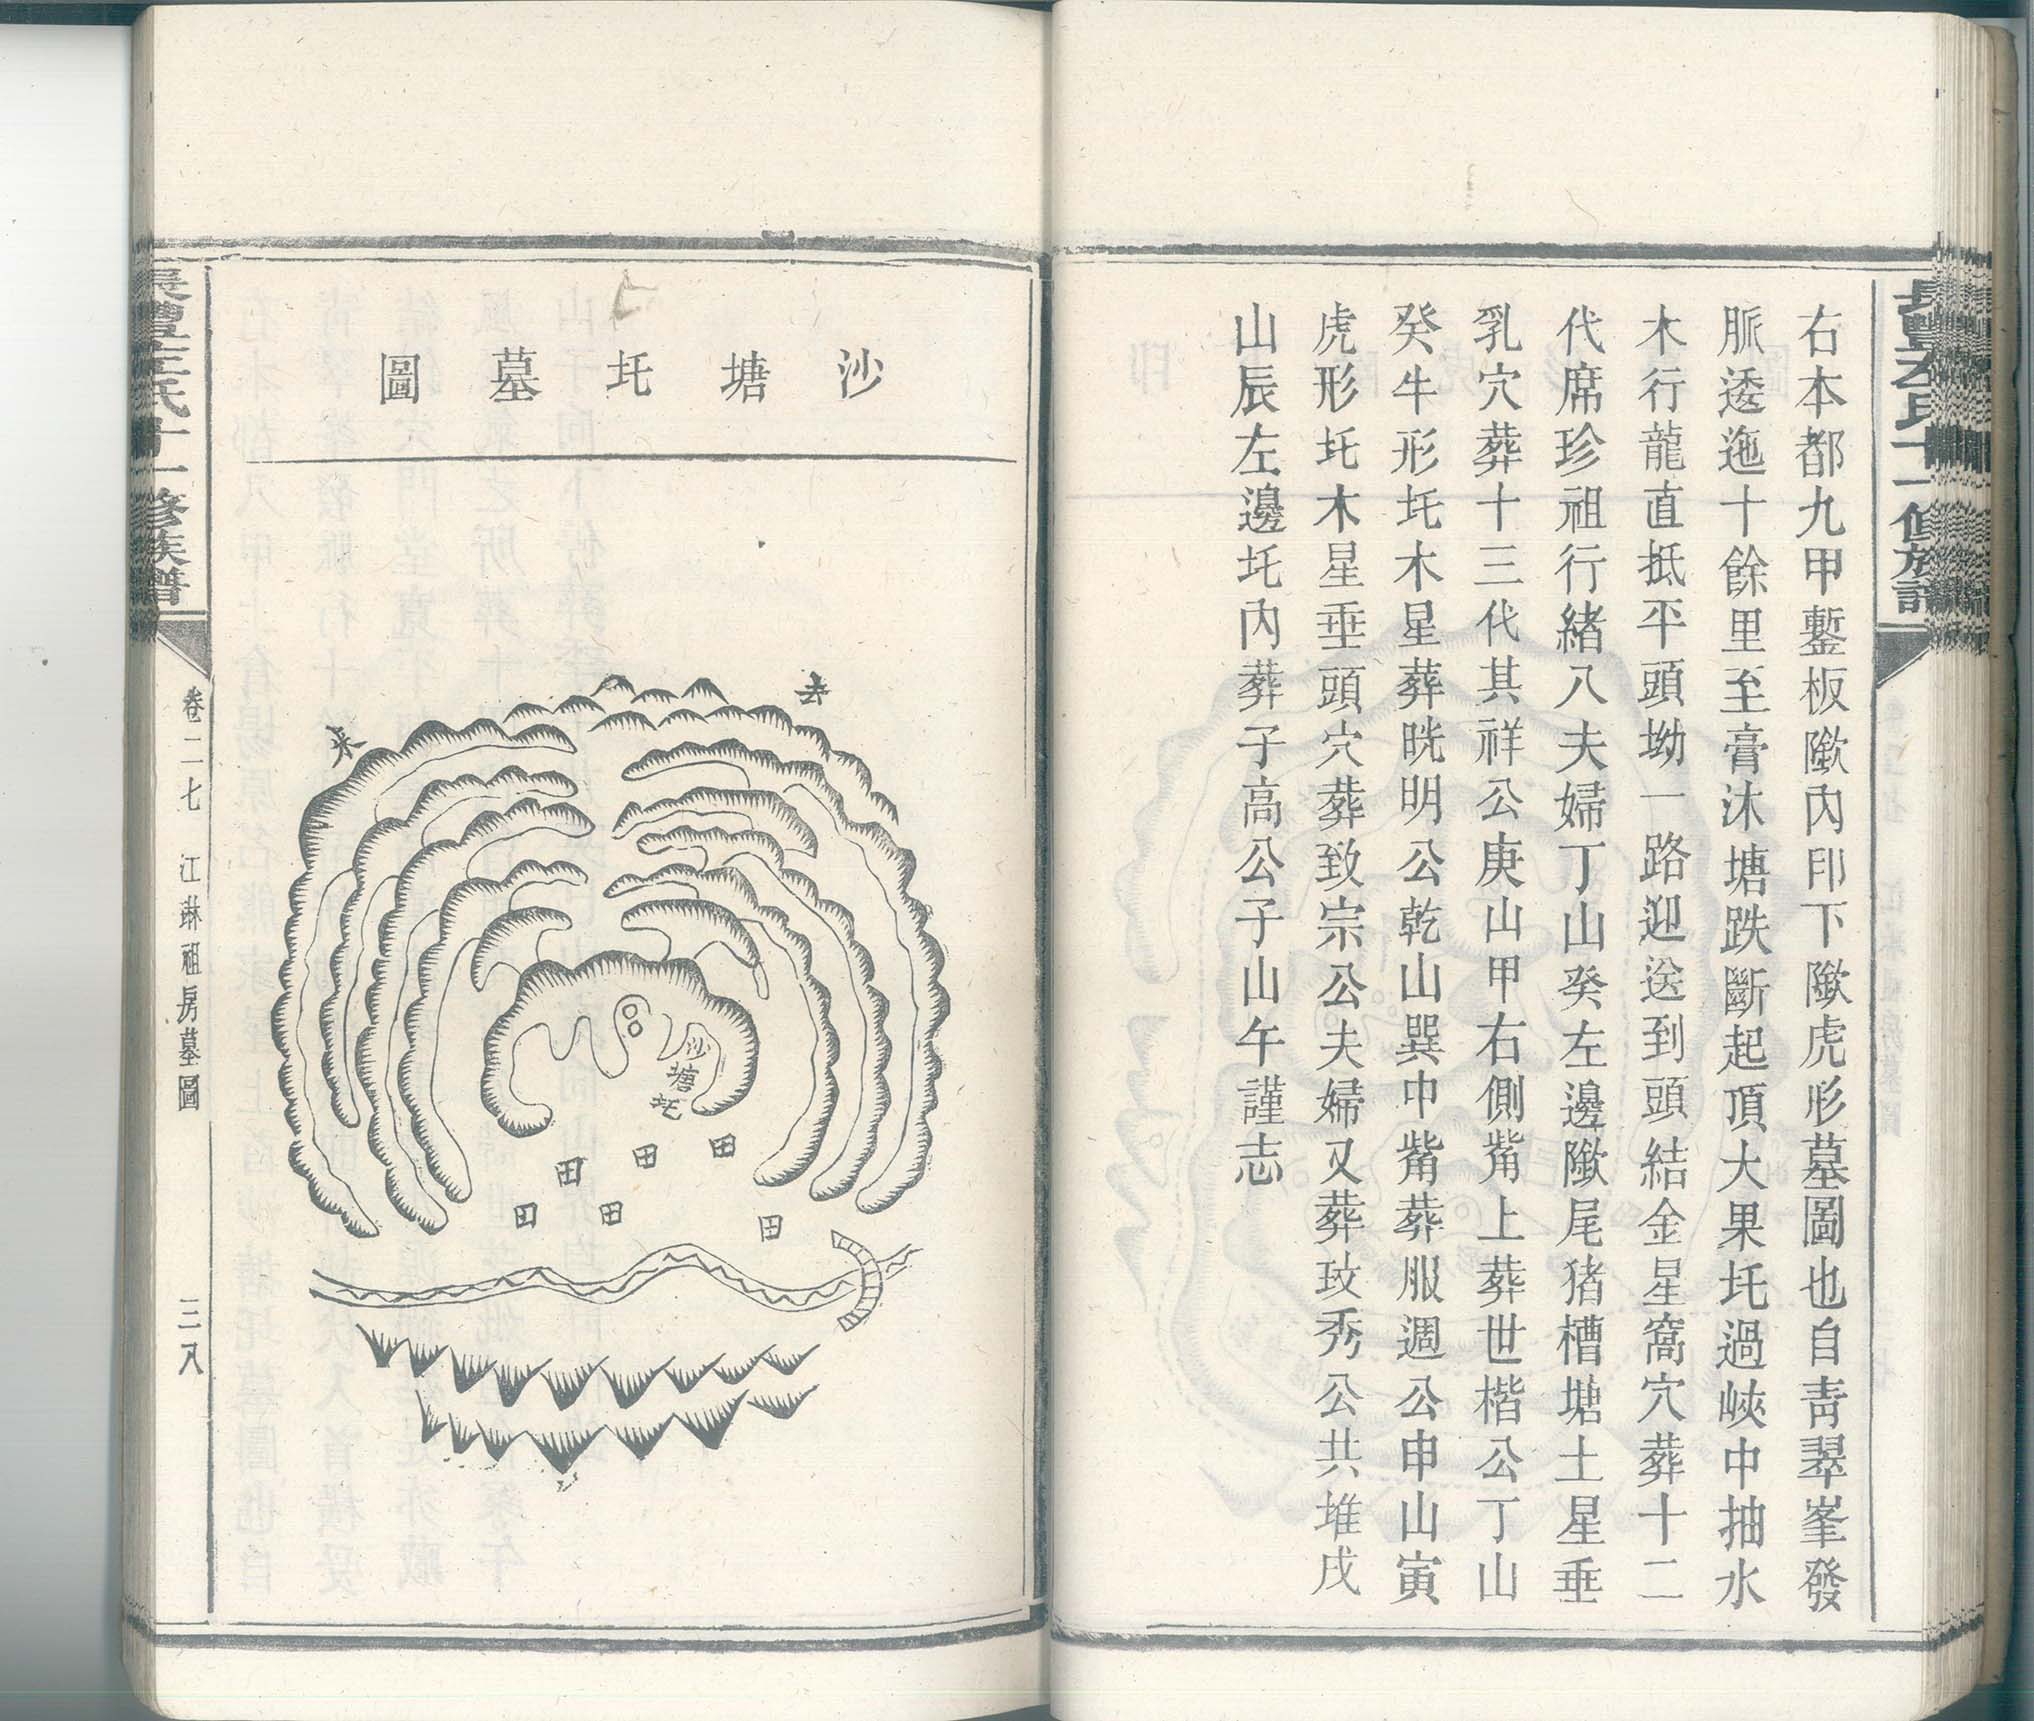 右本都九甲鏨板隞內印下隞虎形墓圖也自靑翠峯發
脈逶迤十餘里至膏沐塘跌斷起頂大果圫過峽中抽水
木行龍直抵平頭坳一路迎送到頭結金星窩穴葬十二
代席珍祖行緒八夫婦丁山癸左邊隞尾猪槽塘土星垂
乳穴葬十三代其祥公庚山甲右側觜上葬世楷公丁山
癸牛形圫木星葬晄明公乾山巽中觜葬服週公申山寅
虎形圫木星垂頭穴葬致宗公夫婦又葬玟秀公共堆戌
山辰左邊圫內葬子高公子山午謹志
沙塘圫墓圖
去
來
沙塘圫
田
田
田
田
田
田
氏十一修族譜
卷二七
江琳祖房墓圖
三八